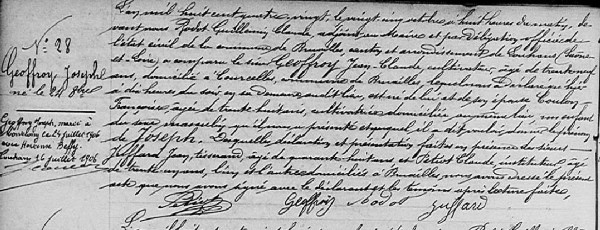 N° 28
Geoffroy Joseph
né le 24 8bre
Geoffroy Joseph, marié à
le 25 juillet 1906
avec
Louhans 16 juillet 1906
L'an mil huit cent quatre vingt, le vingt cinq octobre à huit heures du matin, de-
vant nous Rodot Guillaume Claude, adjoint au Maire et par Délégation officier de
l'état civil de la commune de Bruailles canton et arrondissement de Louhans (Saône
et Loire) a comparu le sieur Geoffroy Jean-Claude cultivateur, âgé de trente neuf
ans, domicilié à Courcelles, commune de Bruailles, lequel nous a déclaré que hier
à du heures du soir en sa demeure audit lieu, est né de lui et de son épouse Coulon
Françoise âgée de trente huit ans, cultivatrice domiciliée au même lieu un enfant
du sexe masculin qu'il nous a présenté et auquel il a dit vouloir donner le prénom
de Joseph. Lesquelles déclaration et présentation faites en présence des sieurs
Juffard Jean, tisserand âgé de quarante huit ans et Petiot Claude, instituteur, âgé
de trente ans, l'un et l'autre domiciliés à Bruailles, nous avons dressé le présent
acte que nous avons signé avec le déclarant et les témoins après lecture faite.
Petiot Geoffroy Rodot Juffard